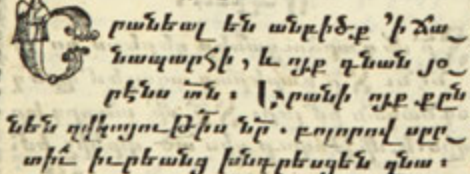 Երանեալ են անբիծք ՚ի ճա֊
նապարհի, և ոյք գնան յօ֊
րէնս տն։ Երանի ոյք քըն
նեն զվկայութիս նր․ բոլորով սըր֊
տիւ իւրեանց խնդրեսցեն զնա։